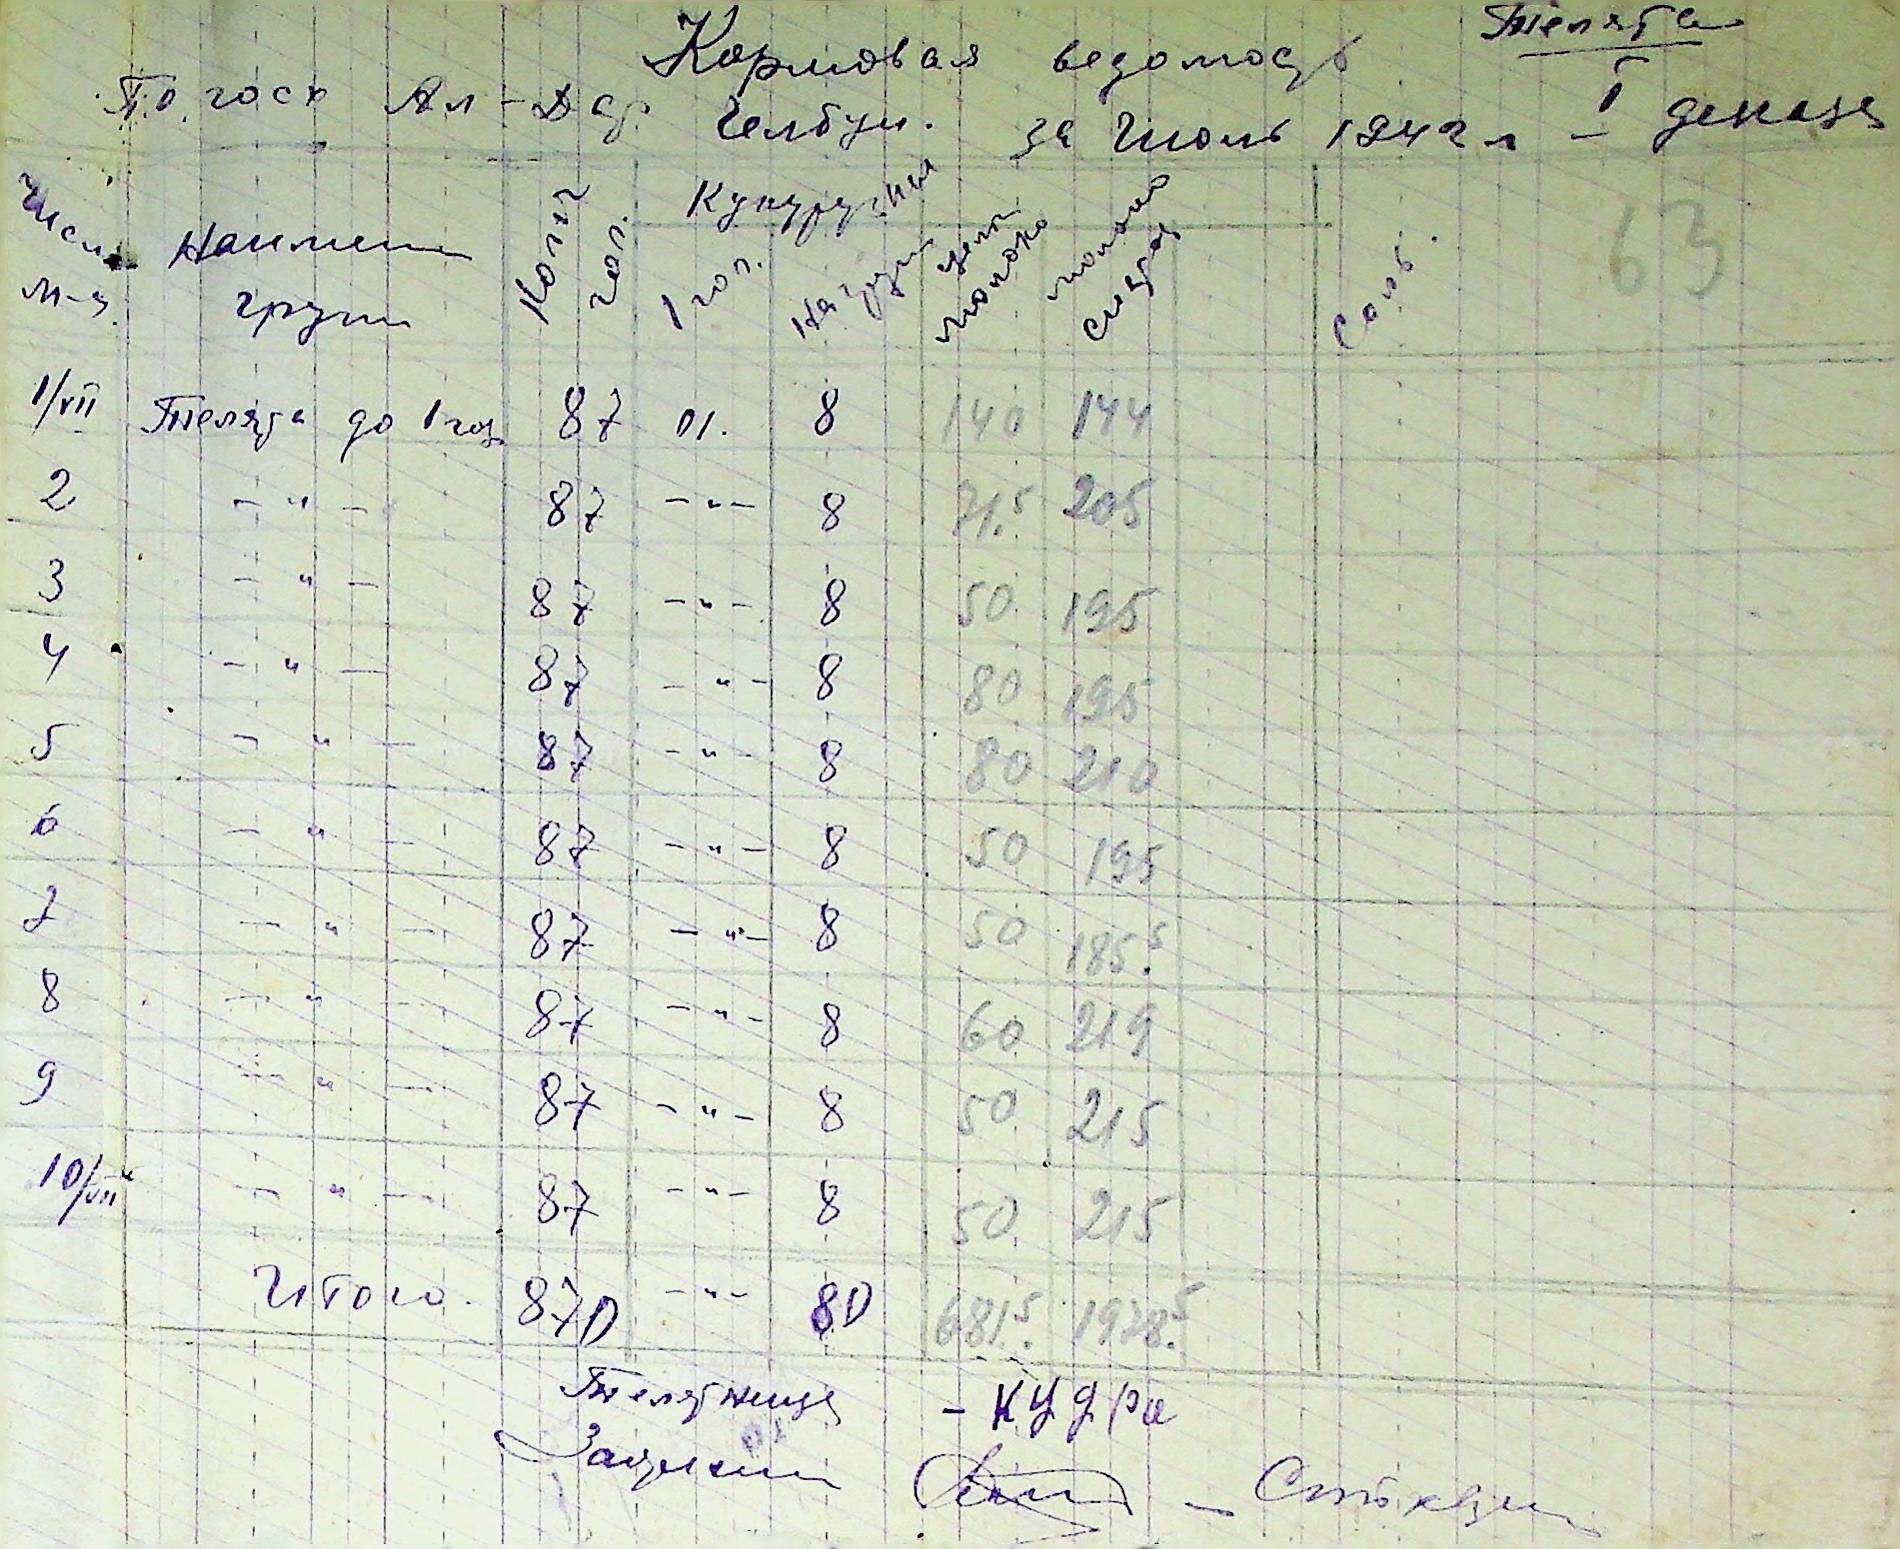 Телята
Кормовая ведомость
По госх Ал-Дар. Челбун. за Июль 1942 г – I декада
63
Число м-ц. Наимен групп Колич гол. Кукурузы 1 гол. на группу цел молоко молоко снятое Соль.
1/VII Телята до 1 год 87 01. 8 140 144
2 – " – 87 – " – 8 71.5 205
3 – " – 87 – " – 8 50. 195
4 – " – 87 – " – 8 80 195
5 – " – 87 – " – 8 80 210
6 – " – 87 – " – 8 50 195
7 – " – 87 – " – 8 50 185.5
8 – " – 87 – " – 8 60 219
9 – " – 87 – " – 8 50. 215
10/VII – " – 87 – " – 8 50. 215
Итого. 870 – " – 80 681.5 1978.5
Телятница – Кудра